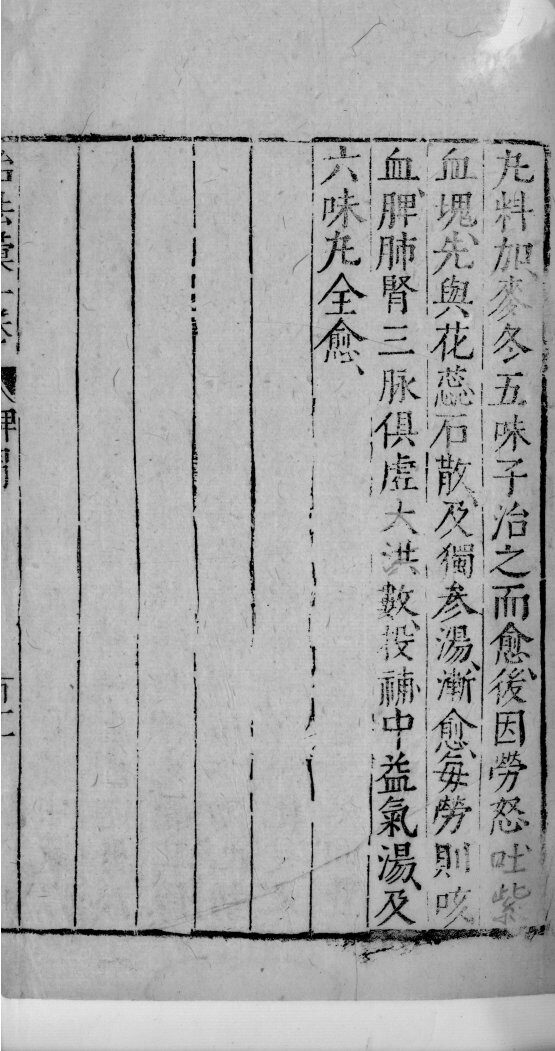 丸料加麥冬五味子治之而愈、後因勞怒、吐紫
血塊、先與花蕊石散、及獨參湯、漸愈、每勞則咳
血、脾肺腎三脉俱虛大洪數、投補中益氣湯、及
六味丸全愈、
治法彙一卷 脾胃